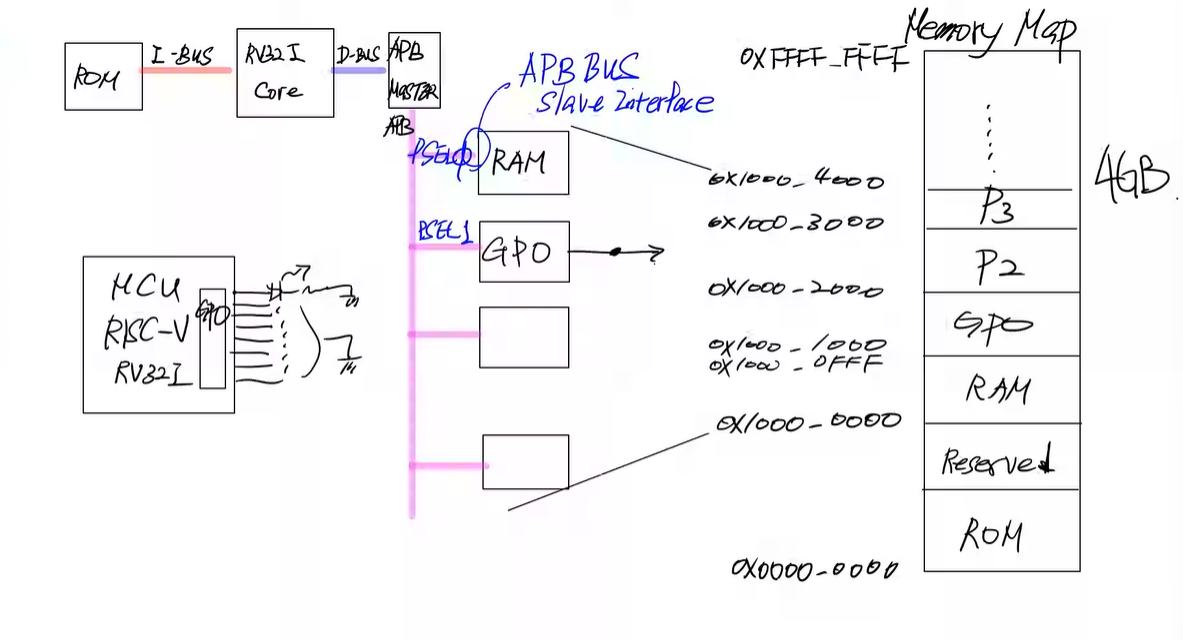 ROM
I-BUS
RV32I
Core
D-BUS
APB
MASTER
APB
APB BUS
Slave Interface
PSEL0
RAM
PSEL1
GPO
MCU
RISC-V
RV32I
GPO
Memory Map
0XFFFF_FFFF
0X1000_4000
0X1000_3000
0X1000_2000
0X1000_1000
0X1000_0FFF
0X1000_0000
0X0000_0000
P3
P2
GPO
RAM
Reserved
ROM
4GB.